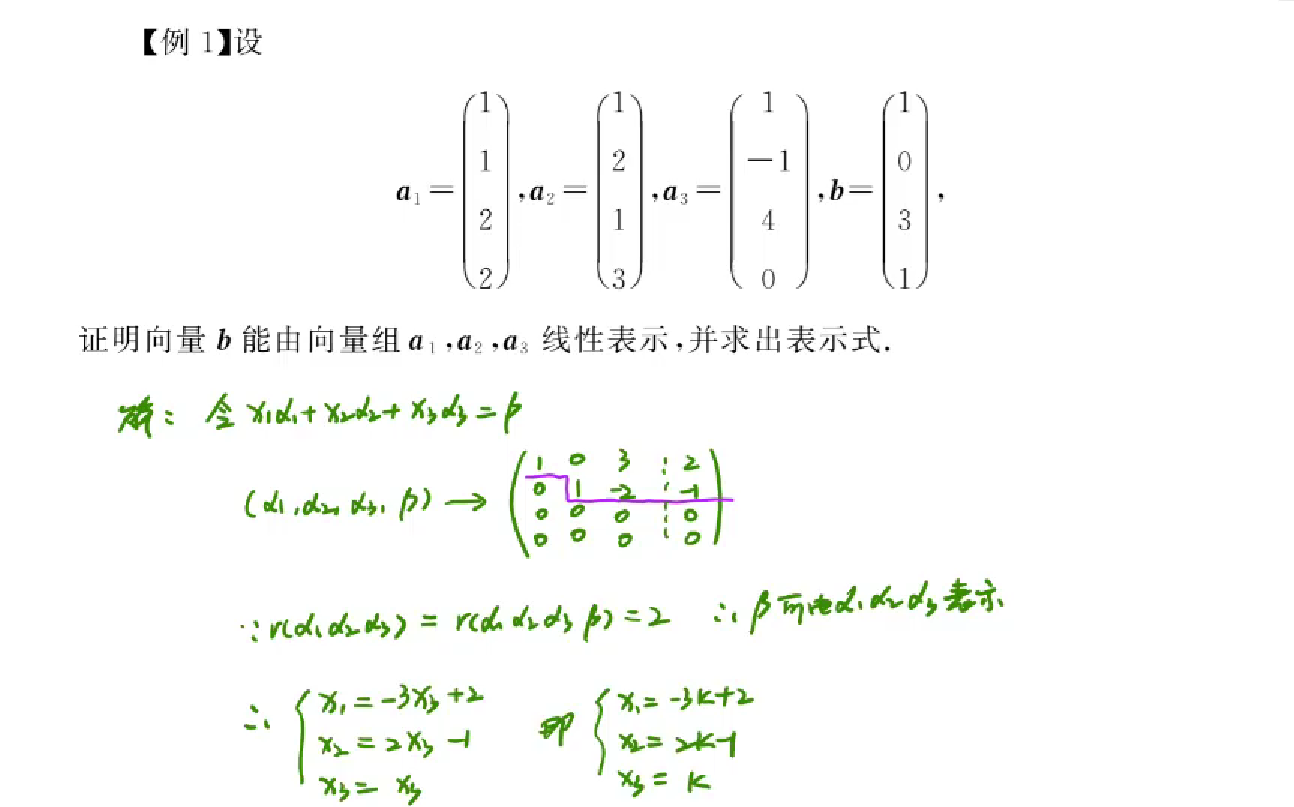 【例 1】设
a₁=(1 1 2 2),a₂=(1 2 1 3),a₃=(1 −1 4 0),b=(1 0 3 1),
证明向量 b 能由向量组 a₁,a₂,a₃ 线性表示,并求出表示式.
解: 令 x₁α₁+x₂α₂+x₃α₃=β
(α₁,α₂,α₃,β)→(1 0 3 ⋮ 2
0 1 -2 ⋮ -1
0 0 0 ⋮ 0
0 0 0 ⋮ 0)
∵r(α₁α₂α₃)=r(α₁α₂α₃β)=2 ∴β可由α₁α₂α₃表示
∴ { x₁=-3x₃+2 即 { x₁=-3k+2
x₂=2x₃-1 x₂=2k-1
x₃=x₃ x₃=k